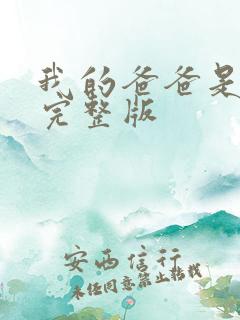 我的爸爸是
完整版
安西信行
未经同意禁止转载